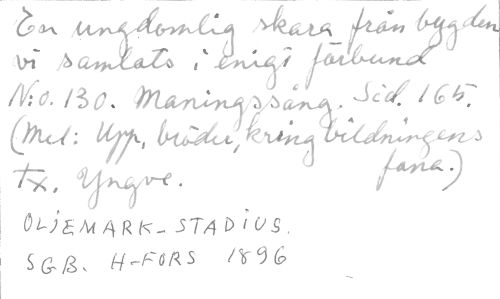 En ungdomlig skara från bygden
vi samlats i enigt förbund
N:o. 130. Maningssång. Sid. 165.
(Mel: Upp, bröder, kring bildningens
fana.)
Tx. Yngve.
OLJEMARK-STADIUS.
SGB. H-FORS 1896